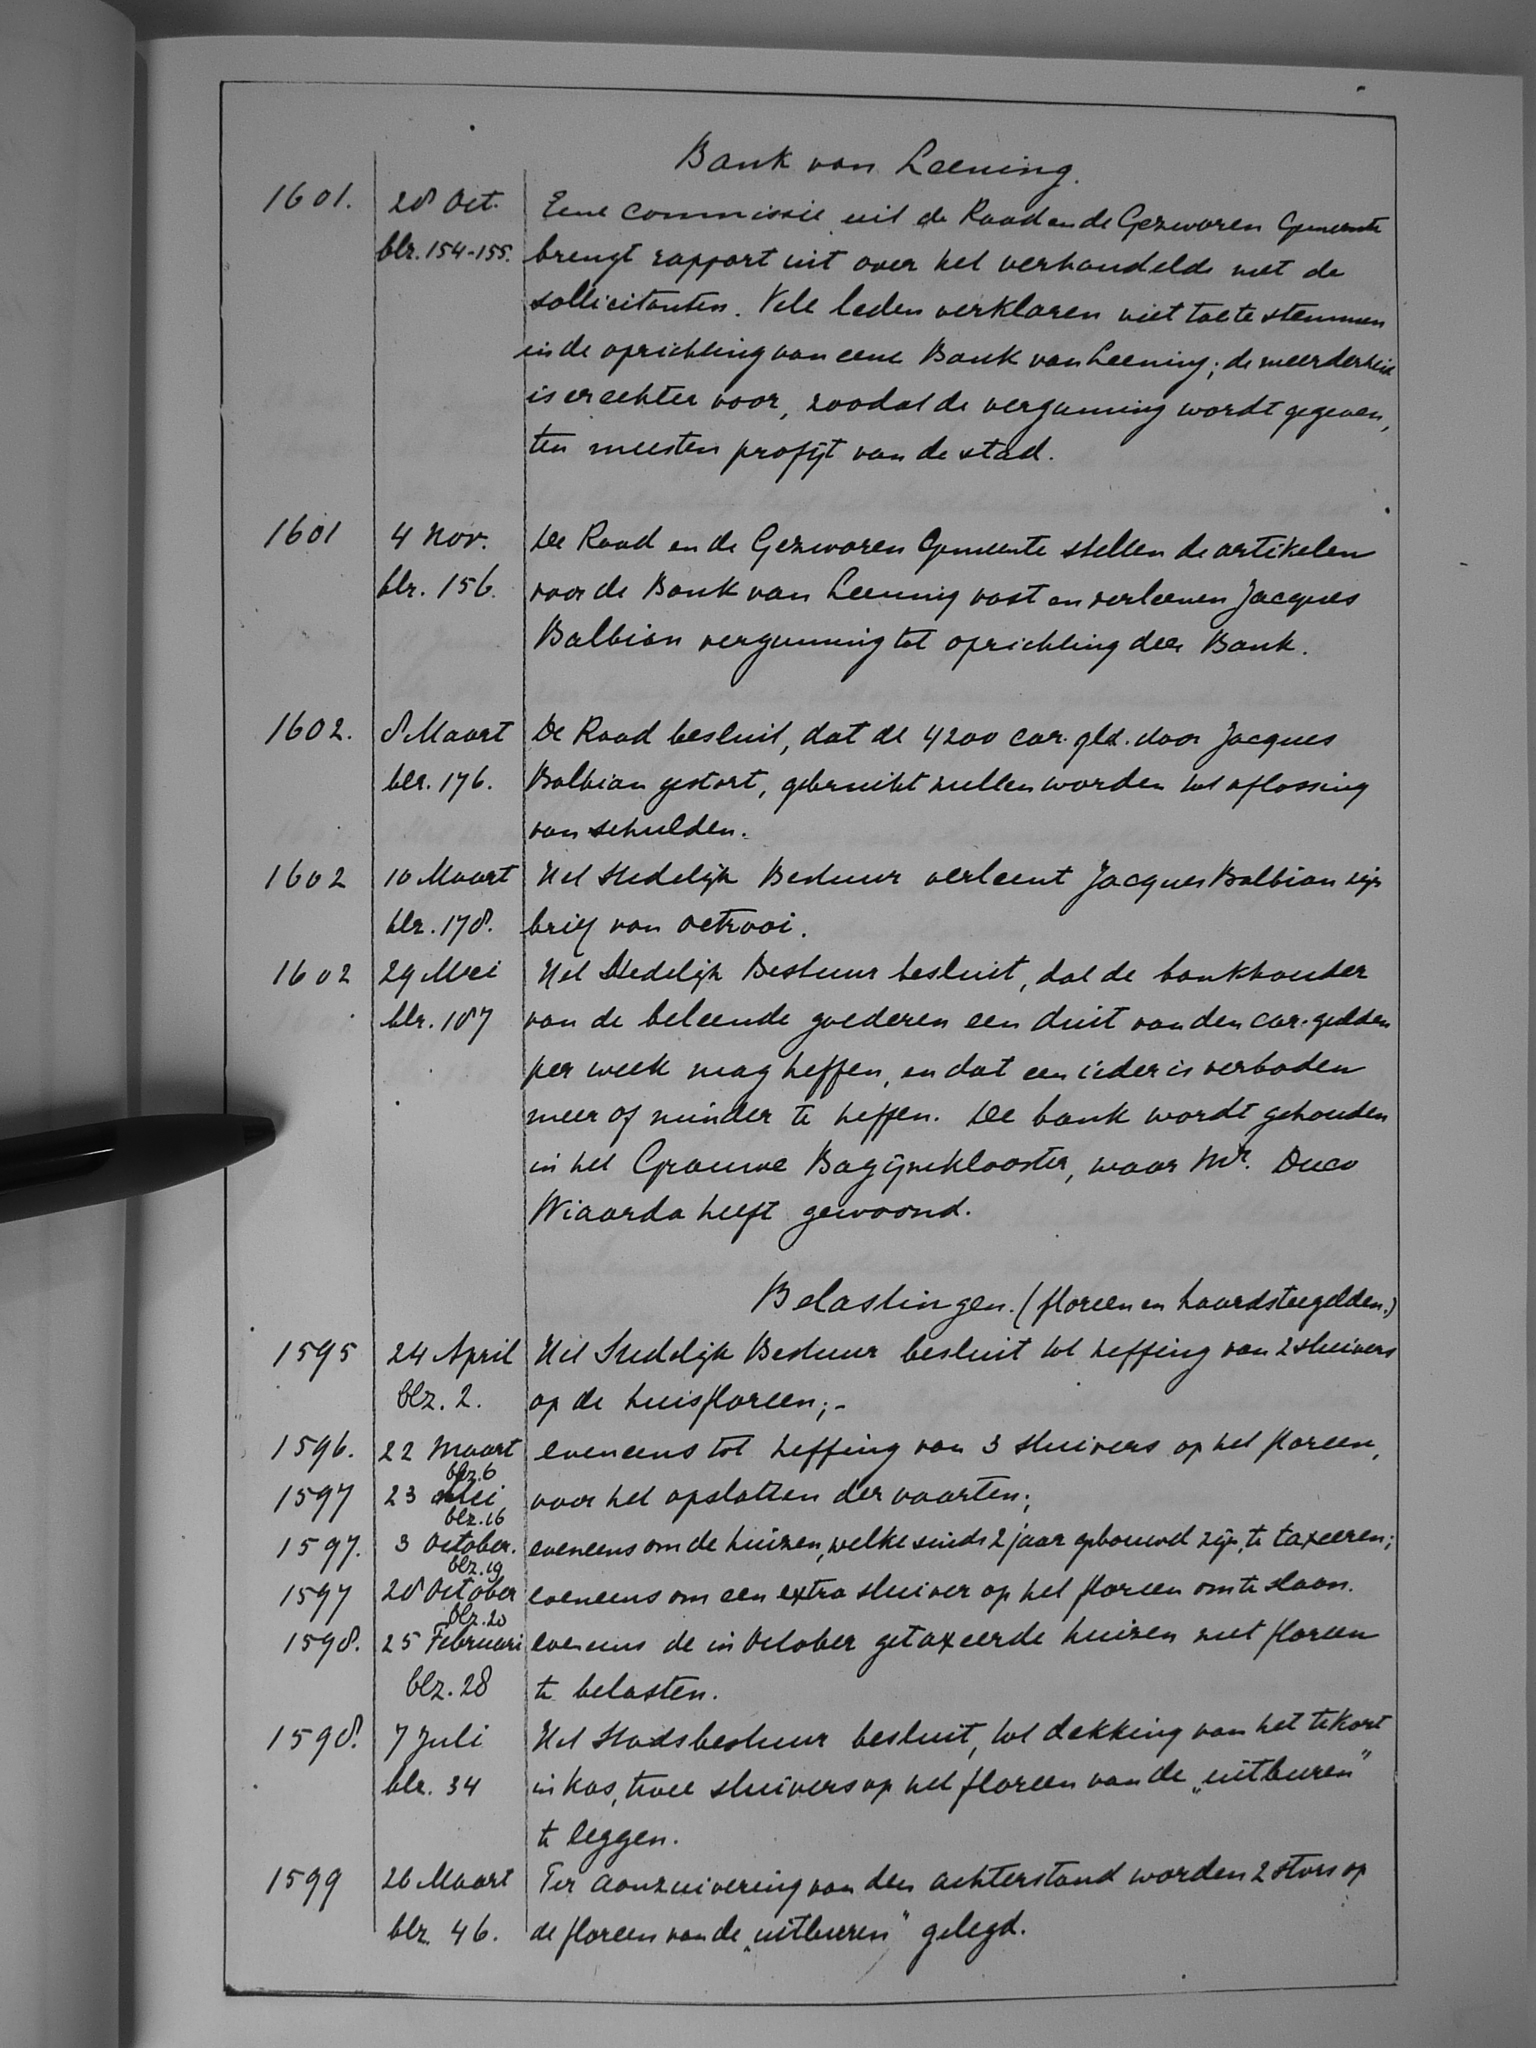 Bank van Leening.
1601. 28 Oct. Eene commissie uit de Raad en de Gezworen Gemeente
blz. 154-155. brengt rapport uit over het verhandelde met de
sollicitanten. Vele leden verklaren niet toe te stemmen
in de oprichting van eene Bank van Leening; de meerderheid
is er echter voor, zoodat de vergunning wordt gegeven,
ten meesten profijt van de stad.
1601 4 Nov. De Raad en de Gezworen Gemeente stellen de artikelen
blz. 156. voor de Bank van Leening vast en verleenen Jacques
Balbian vergunning tot oprichting der Bank.
1602. 8 Maart De Raad besluit, dat de 4200 car. gld. door Jacques
blz. 176. Balbian gestort, gebruikt zullen worden tot aflossing
van schulden.
1602 10 Maart Het Stedelijk Bestuur verleent Jacques Balbian zijn
blz. 178. brief van octrooi.
1602 29 Mei Het Stedelijk Bestuur besluit, dat de bankhouder
blz. 187 van de beleende goederen een duit van den car. gulden
per week mag heffen, en dat een ieder is verboden
meer of minder te heffen. De bank wordt gehouden
in het Grauwe Bagijneklooster, waar Mr. Duco
Wiaarda heeft gewoond.
Belastingen. (floreen en haardsteegelden.)
1595 24 April Het Stedelijk Bestuur besluit tot heffing van 2 stuivers
blz. 2. op de huisfloreen;-
1596. 22 Maart eveneens tot heffing van 3 stuivers op het floreen,
blz. 6
1597 23 Mei voor het opslatten der vaarten;
blz. 16
1597. 3 October. eveneens om de huizen, welke sinds 2 jaar gebouwd zijn, te taxeeren;
blz. 19
1597 28 October eveneens om een extra stuiver op het floreen om te slaan.
blz. 20
1598. 25 Februari eveneens de in October getaxeerde huizen met floreen
blz. 28 te belasten.
1598. 7 Juli Het Stadsbestuur besluit, tot dekking van het tekort
blz. 34 in kas, twee stuivers op het floreen van de „uitburen”
te leggen.
1599 26 Maart Ter aanzuivering van den achterstand worden 2 stvrs op
blz. 46. de floreen van de „uitburen” gelegd.